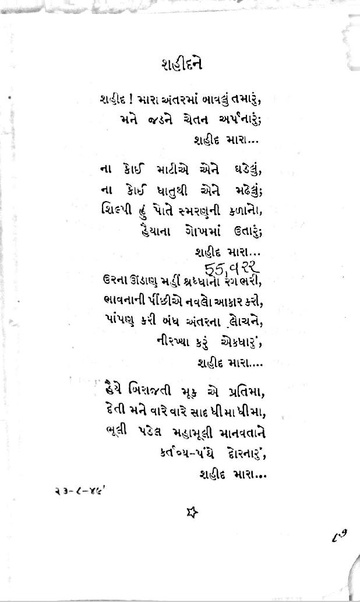 શહીદને
શહીદ ! મારા અંતરમાં બાવલું તમારું,
મને જડને ચેતન અર્પનારું;
શહીદ મારા...
ના કોઈ માટીએ એને ઘડેલું,
ના કોઈ ધાતુથી એને મઢેલું;
શિલ્પી હું પોતે સ્મરણની કળાનો,
હૈયાના ગોખમાં ઉતારું;
શહીદ મારા...
ઉરના ઊંડાણ મહીં શ્રધ્ધાના રંગભરી,
ભાવનાની પીંછીએ નવલો આકાર કરી,
પાંપણ કરી બંધ અંતરના લોચને,
નીરખ્યા કરું એકધારું,
શહીદ મારા....
હૈયે બિરાજતી મૂક એ પ્રતિમા,
દેતી મને વારે વારે સાદ ધીમા ધીમા,
ભૂલી પડેલ મહામૂલી માનવતાને
કર્તવ્ય-પંથે દોરનારું,
શહીદ મારા...
૨૩-૮-૪૯'